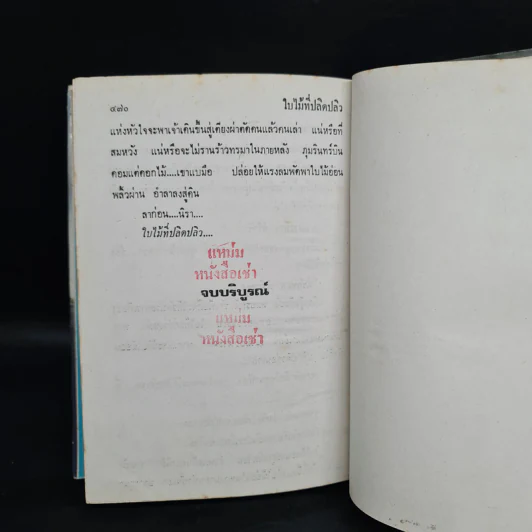 ๔๗๐ ใบไม้ที่ปลิดปลิว
แห่งหัวใจจะพาเจ้าเดินขึ้นสู่เตียงผ่าตัดคนแล้วคนเล่า แน่หรือที่
สมหวัง แน่หรือจะไม่รานร้าวทรมาในภายหลัง ภุมรินทร์บิน
ตอมแต่ดอกไม้....เขาแบมือ ปล่อยให้แรงลมพัดพาใบไม้อ่อน
พลิ้วผ่าน อำลาลงสู่ดิน
ลาก่อน....นิรา....
ใบไม้ที่ปลิดปลิว....
แหม่ม
หนังสือเช่า
จบบริบูรณ์
แหม่ม
หนังสือเช่า